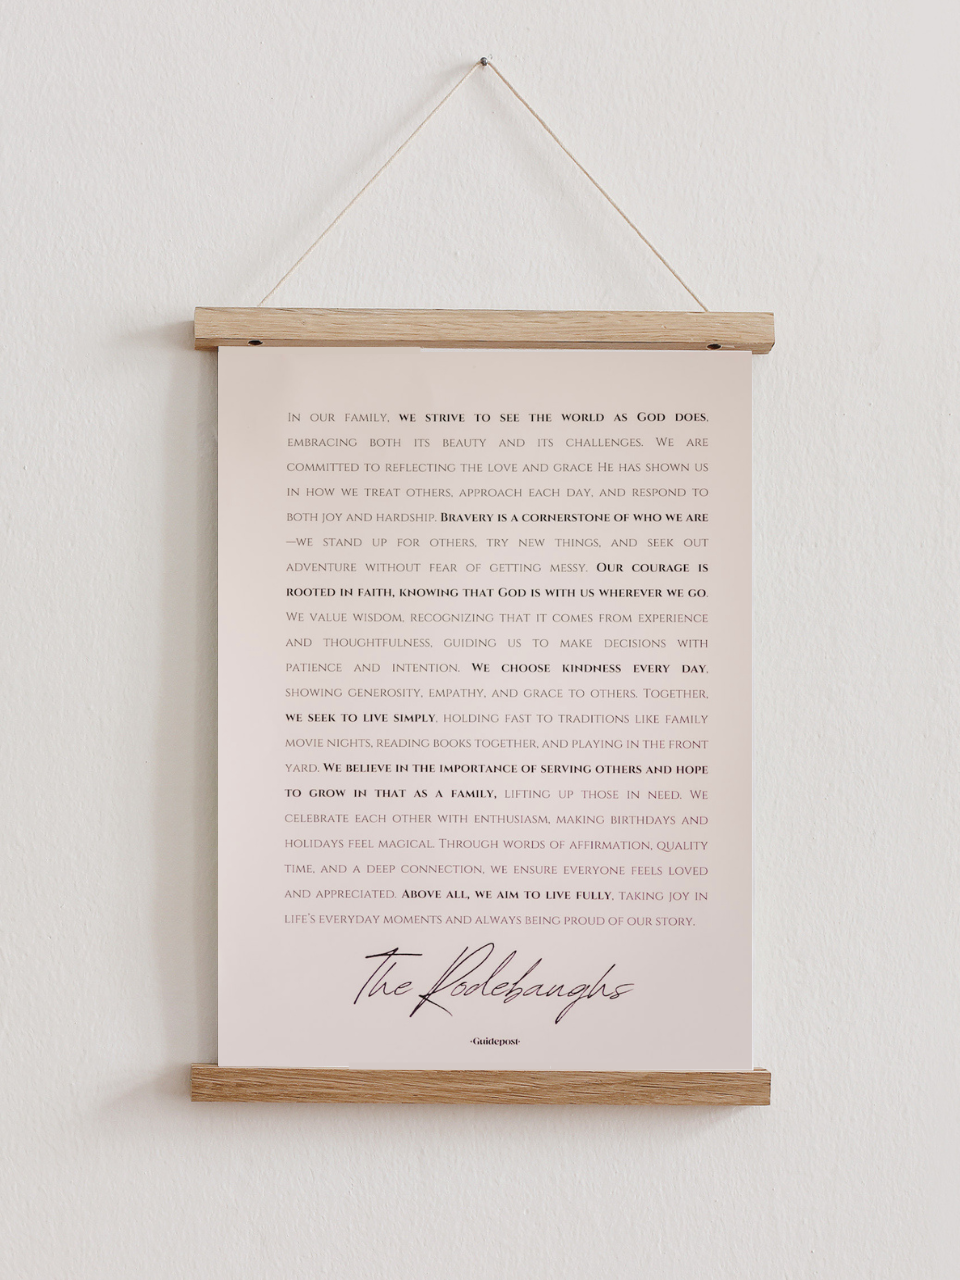 In our family, we strive to see the world as God does,
embracing both its beauty and its challenges. We are
committed to reflecting the love and grace He has shown us
in how we treat others, approach each day, and respond to
both joy and hardship. Bravery is a cornerstone of who we are
—we stand up for others, try new things, and seek out
adventure without fear of getting messy. Our courage is
rooted in faith, knowing that God is with us wherever we go.
We value wisdom, recognizing that it comes from experience
and thoughtfulness, guiding us to make decisions with
patience and intention. We choose kindness every day,
showing generosity, empathy, and grace to others. Together,
we seek to live simply, holding fast to traditions like family
movie nights, reading books together, and playing in the front
yard. We believe in the importance of serving others and hope
to grow in that as a family, lifting up those in need. We
celebrate each other with enthusiasm, making birthdays and
holidays feel magical. Through words of affirmation, quality
time, and a deep connection, we ensure everyone feels loved
and appreciated. Above all, we aim to live fully, taking joy in
life's everyday moments and always being proud of our story.
The Rodebaughs
·Guidepost·